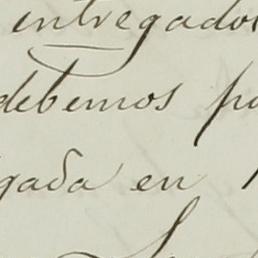 entregado
debemos pa
gada en